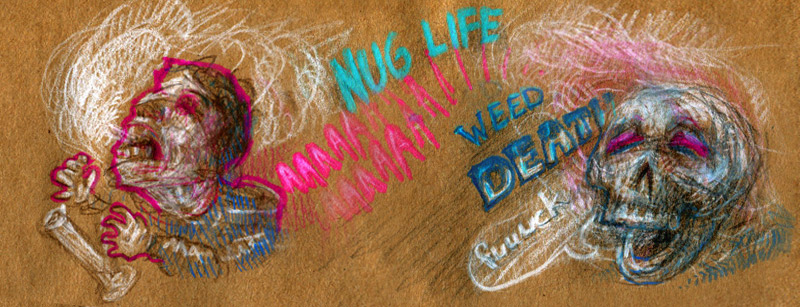 NUG LIFE
AAAAAAA
AAAAAAA
WEED
DEATH
fuuuck